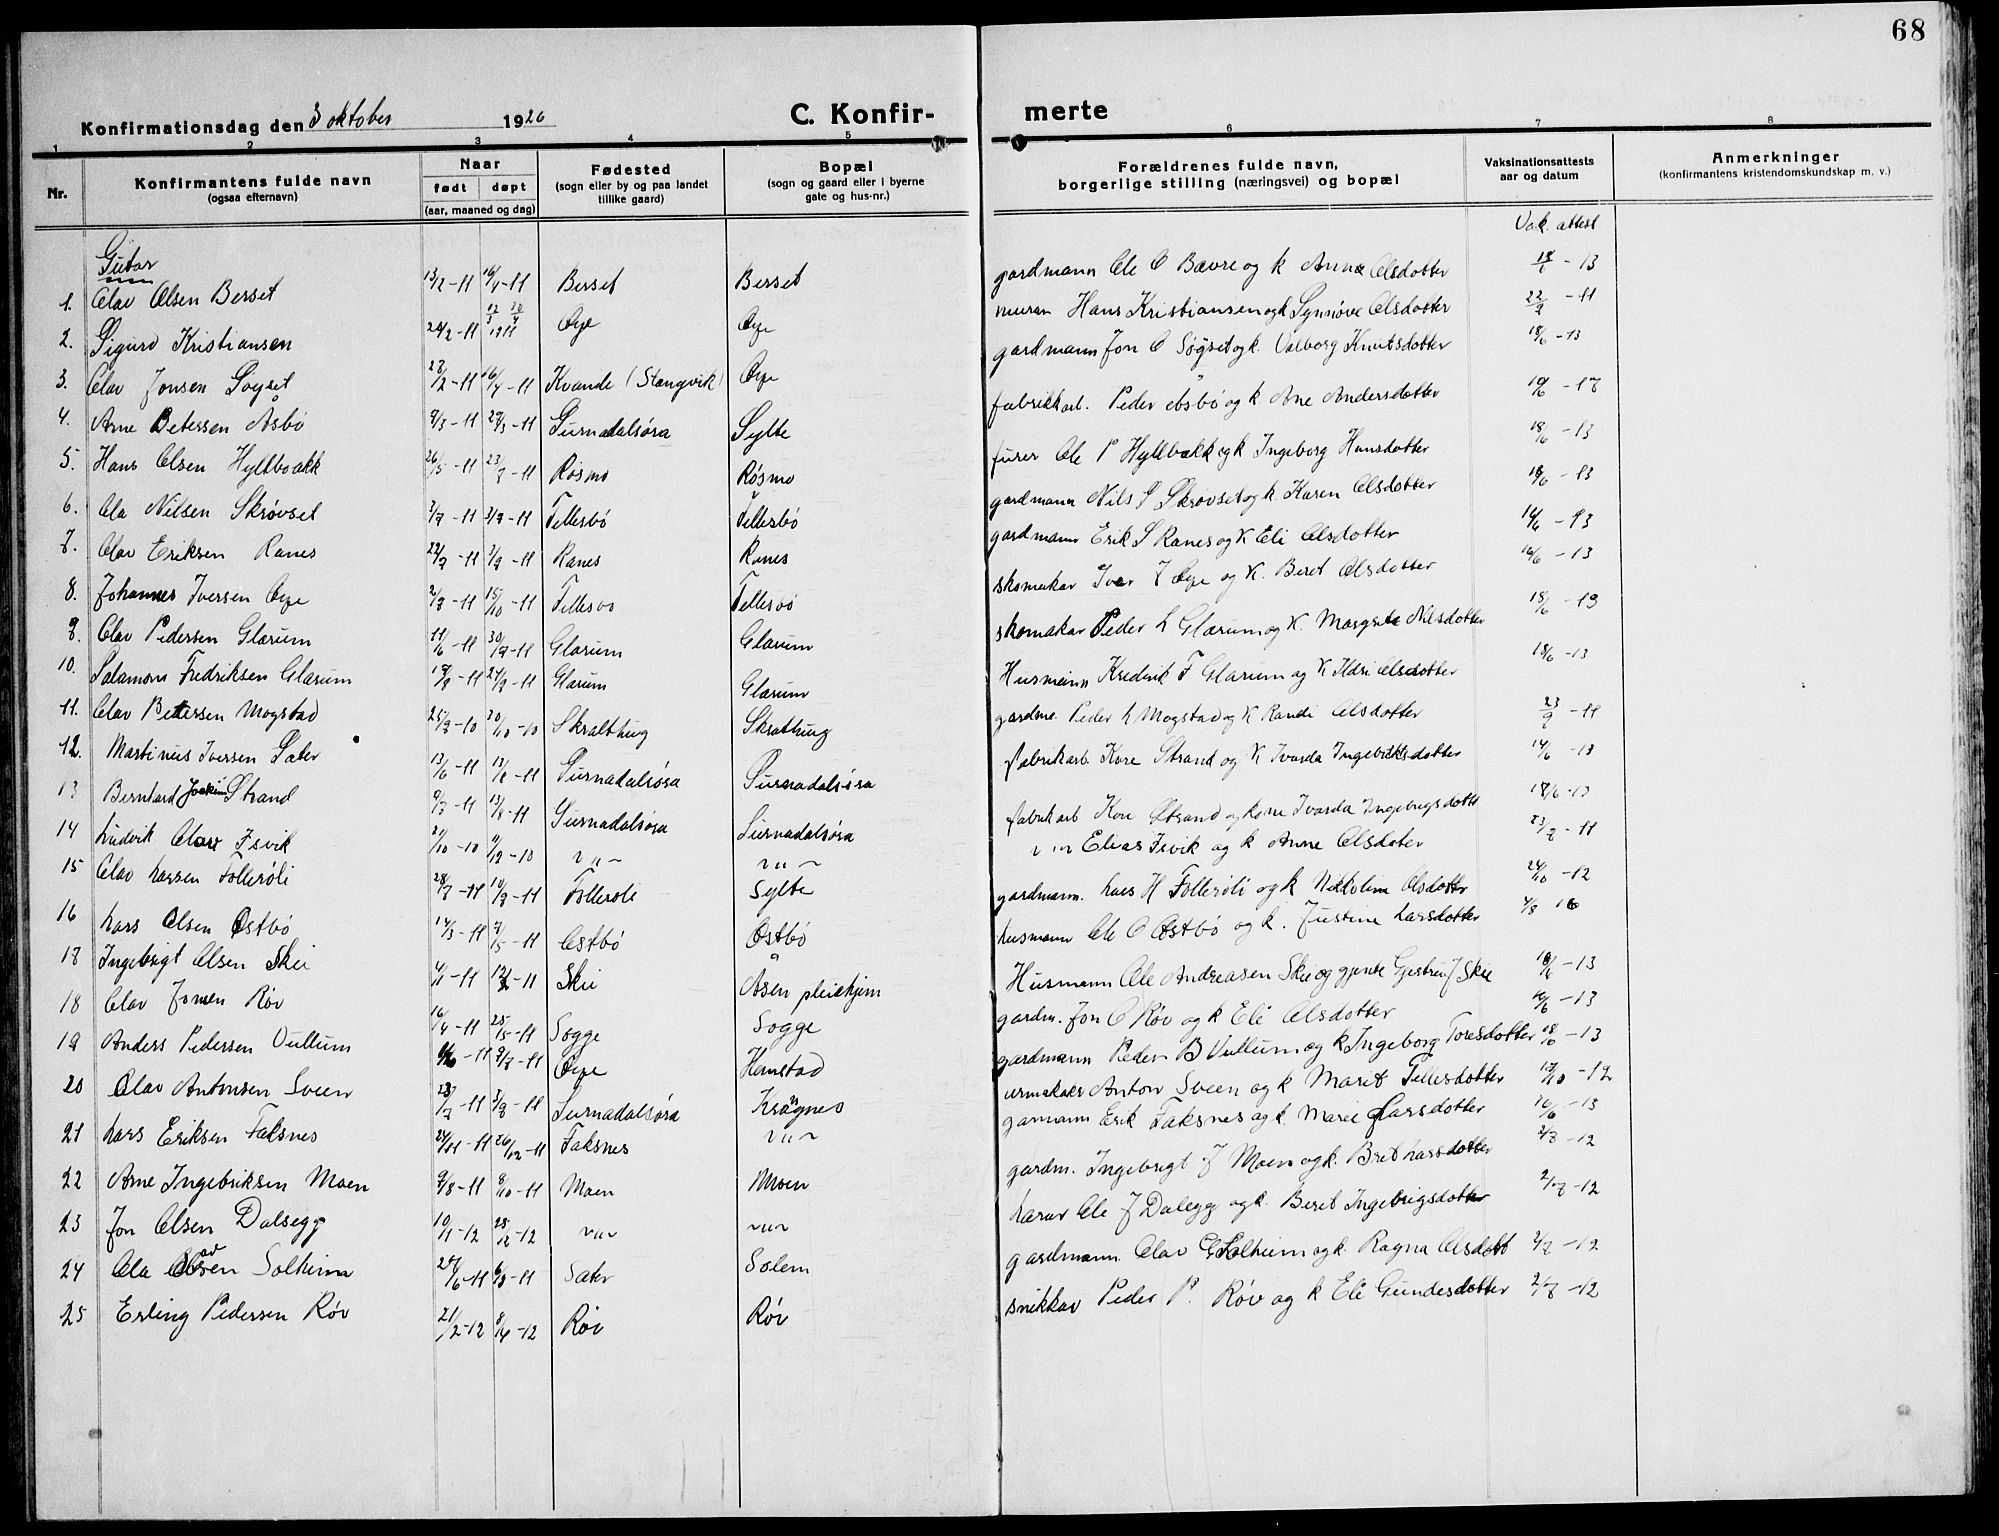 68
Konfirmationsdag den 3 oktober 1926
C. Konfirmerte
1 2 3 4 5 6 7 8
Nr.
Konfirmantens fulde navn (ogsaa efternavn)
Naar født døpt (aar, maaned og dag)
Fødested (sogn eller by og paa landet tillike gaard)
Bopæl (sogn og gaard eller i byerne gate og hus-nr.)
Forældrenes fulde navn, borgerlige stilling (næringsvei) og bopæl
Vaksinationsattests aar og datum
Anmerkninger (konfirmantens kristendomskundskap m. v.)
Vak. attest
Gutar
1. Olav Olsen Berset 13/2-11 16/4-11 Berset Berset gardmann Ole O Bævre og k Anna Olsdotter -13
2. Sigurd Kristiansen 24/2-11 Øye Øye murar Hans Kristiansen og k Synnøve Olsdotter 22/9-11
3. Olav Jonsen Søyset 16/4-11 Kvande (Stangvik) Øye gardmann Jon O Søyset og k. Valborg Knutsdotter 18/6-13
4. Arne Petersen Åsbø 9/3-11 29/3-11 Surnadalsøra Sylte fabrikkarb. Peder Åsbø og k Ane Andersdotter
5. Hans Olsen Hyllbakk 26/5-11 Røsmo Røsmo Ole P Hyllbakk og k Ingeborg Hansdotter 18/6-13
6. Ola Nilsen Skrøvset Tellesbø Tellesbø gardmann Nils S Skrøvset og k. Karen Olsdotter 18/6-13
7. Olav Eriksen Ranes Ranes Ranes gardmann Erik S Ranes og k Eli Olsdotter -13
8. Johannes Iversen Øye 15/10-11 Tellesbø Tellesbø skomakar Iver Øye og k. Beret Olsdotter 16/6-13
9. Olav Pedersen Glærum 11/6-11 30/7-11 Glærum Glærum skomakar Peder L Glærum og k. Margrete Nilsdotter 18/6-13
10. Salamon Fredriksen Glærum Glærum Glærum Husmann Fredrik F Glærum og k Ildri Olsdotter 18/6-13
11. Olav Pettersen Mogstad 30/10-10 Skralthug Skralthug gardm. Peder L Mogstad og k Randi Olsdotter -11
12. Martinus Iversen Sæter 13/6-11 13/8-11 Surnadalsøra Surnadalsøra fabrikarb Kore Strand og k Ivarda Ingebriktsdotter 14/6-13
13 Bernhard Joakim Strand 13/8-11 Surnadalsøra Surnadalsøra fabrikarb Kore Strand og kone Ivarda Ingebrigsdotter 18/6-13
14 Ludvik Olav Isvik 21/10-10 9/12-10 ~ " ~ ~ " ~ ~ " ~ Elias Isvik og k Anne Olsdoter -11
15 Olav Larsen Follerøli Follerøli Sylte gardmann. Lars H Follerøli og k Nikoline Olsdotter 24/10-12
16 Lars Olsen Østbø 7/5-11 Østbø Østbø husmann Ole O Østbø og k. Justine Larsdotter
17 Ingebrigt Olsen Skei Skei Åsen pleiehjem Husmann Ole Andreasen Skei og gjente Gjertru J Skei -13
18 Olav Jonsen Røv 16/4-11 Sogge Sogge gardm. Jon O Røv og k Eli Olsdotter -13
19 Anders Pedersen Vullum Øye Hamstad gardmann Peder B Vullum og k Ingeborg Toresdotter 18/6-13
20 Olav Antonsen Sveen Surnadalsøra Krågnes urmakar Anton Sveen og k Marit Tellesdotter -12
21 Lars Eriksen Faksnes 24/11-11 26/12-11 Faksnes ~ " ~ Erik Faksnes og k. Marie Larsdotter 16/6-13
22 Arne Ingebriksen Moen 9/8-11 8/10-11 Moen Moen gardm. Ingebrigt J Moen og k. Brit Larsdotter 2/8-12
23 Jon Olsen Dalsegg 10/11-12 28/12-12 ~ " ~ ~ " ~ Ole J Dalegg og k. Beret Ingebrigsdotter -12
24 Ola Olavsen Solheim Sæter Solem gardmann Olav G Solheim og k. Ragna Olsdott -12
25 Erling Pedersen Røv 21/2-12 8/4-12 Røv Røv snikkar Peder P. Røv og k Eli Gundesdotter -12